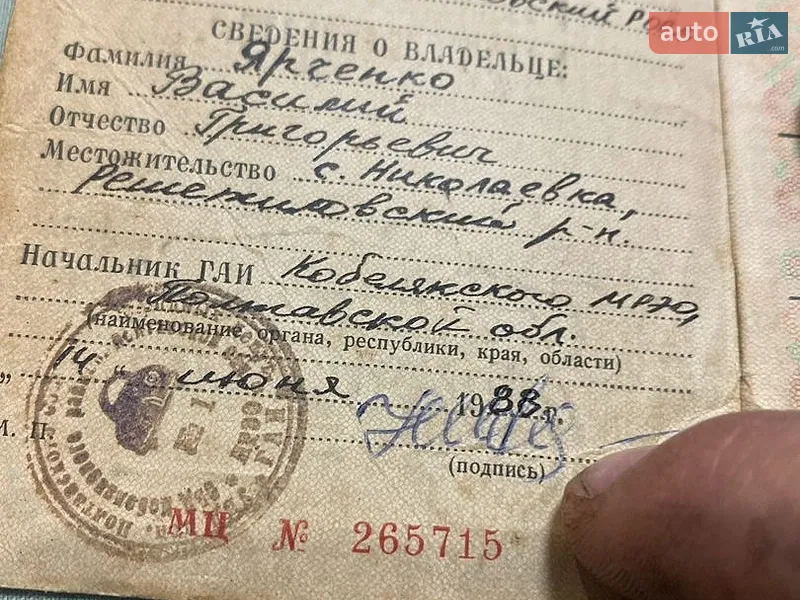 auto RIA .com
СВЕДЕНИЯ О ВЛАДЕЛЬЦЕ:
Фамилия Ярченко
Имя Василий
Отчество Григорьевич
Местожительство с. Николаевка,
Решетиловский р-н.
Начальник ГАИ Кобелякского МРЭО,
Полтавской обл.
(наименование органа, республики, края, области)
„14" июня 1988 г.
М. П.
(подпись)
МЦ № 265715